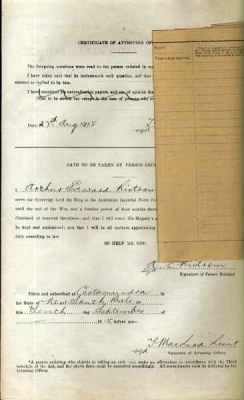 CERTIFICATE OF ATTESTING OF
The foregoing questions were read to the person enlisted in
I have taken care that he understands each question, and that
entered as replied to by him.
I have examined his naturalization papers, and am of opinion
(This is to be struck out except in the case of persons who
Date 27th Aug 1915
OATH TO BE TAKEN BY PERSON
I Arthur Edward
serve our Sovereign Lord the King in the Australian Imperial Force
until the end of the War, and a further period of four months
discharged, or removed therefrom; and that I will resist His Majesty's
be kept and maintained; and that I will in all matters appertaining
duty according to law.
SO HELP ME, GOD.
Signature of Person Enlisted.
Taken and subscribed at Cootamundra
the State of New South Wales
this Tenth day September
before me
Signature of Attesting Officer.
*A person enlisting who objects to taking an oath may make an affirmation in accordance with the Third
Schedule of the Act, and the above form must be amended accordingly. All amendments must be initialled by the
Attesting Officer.